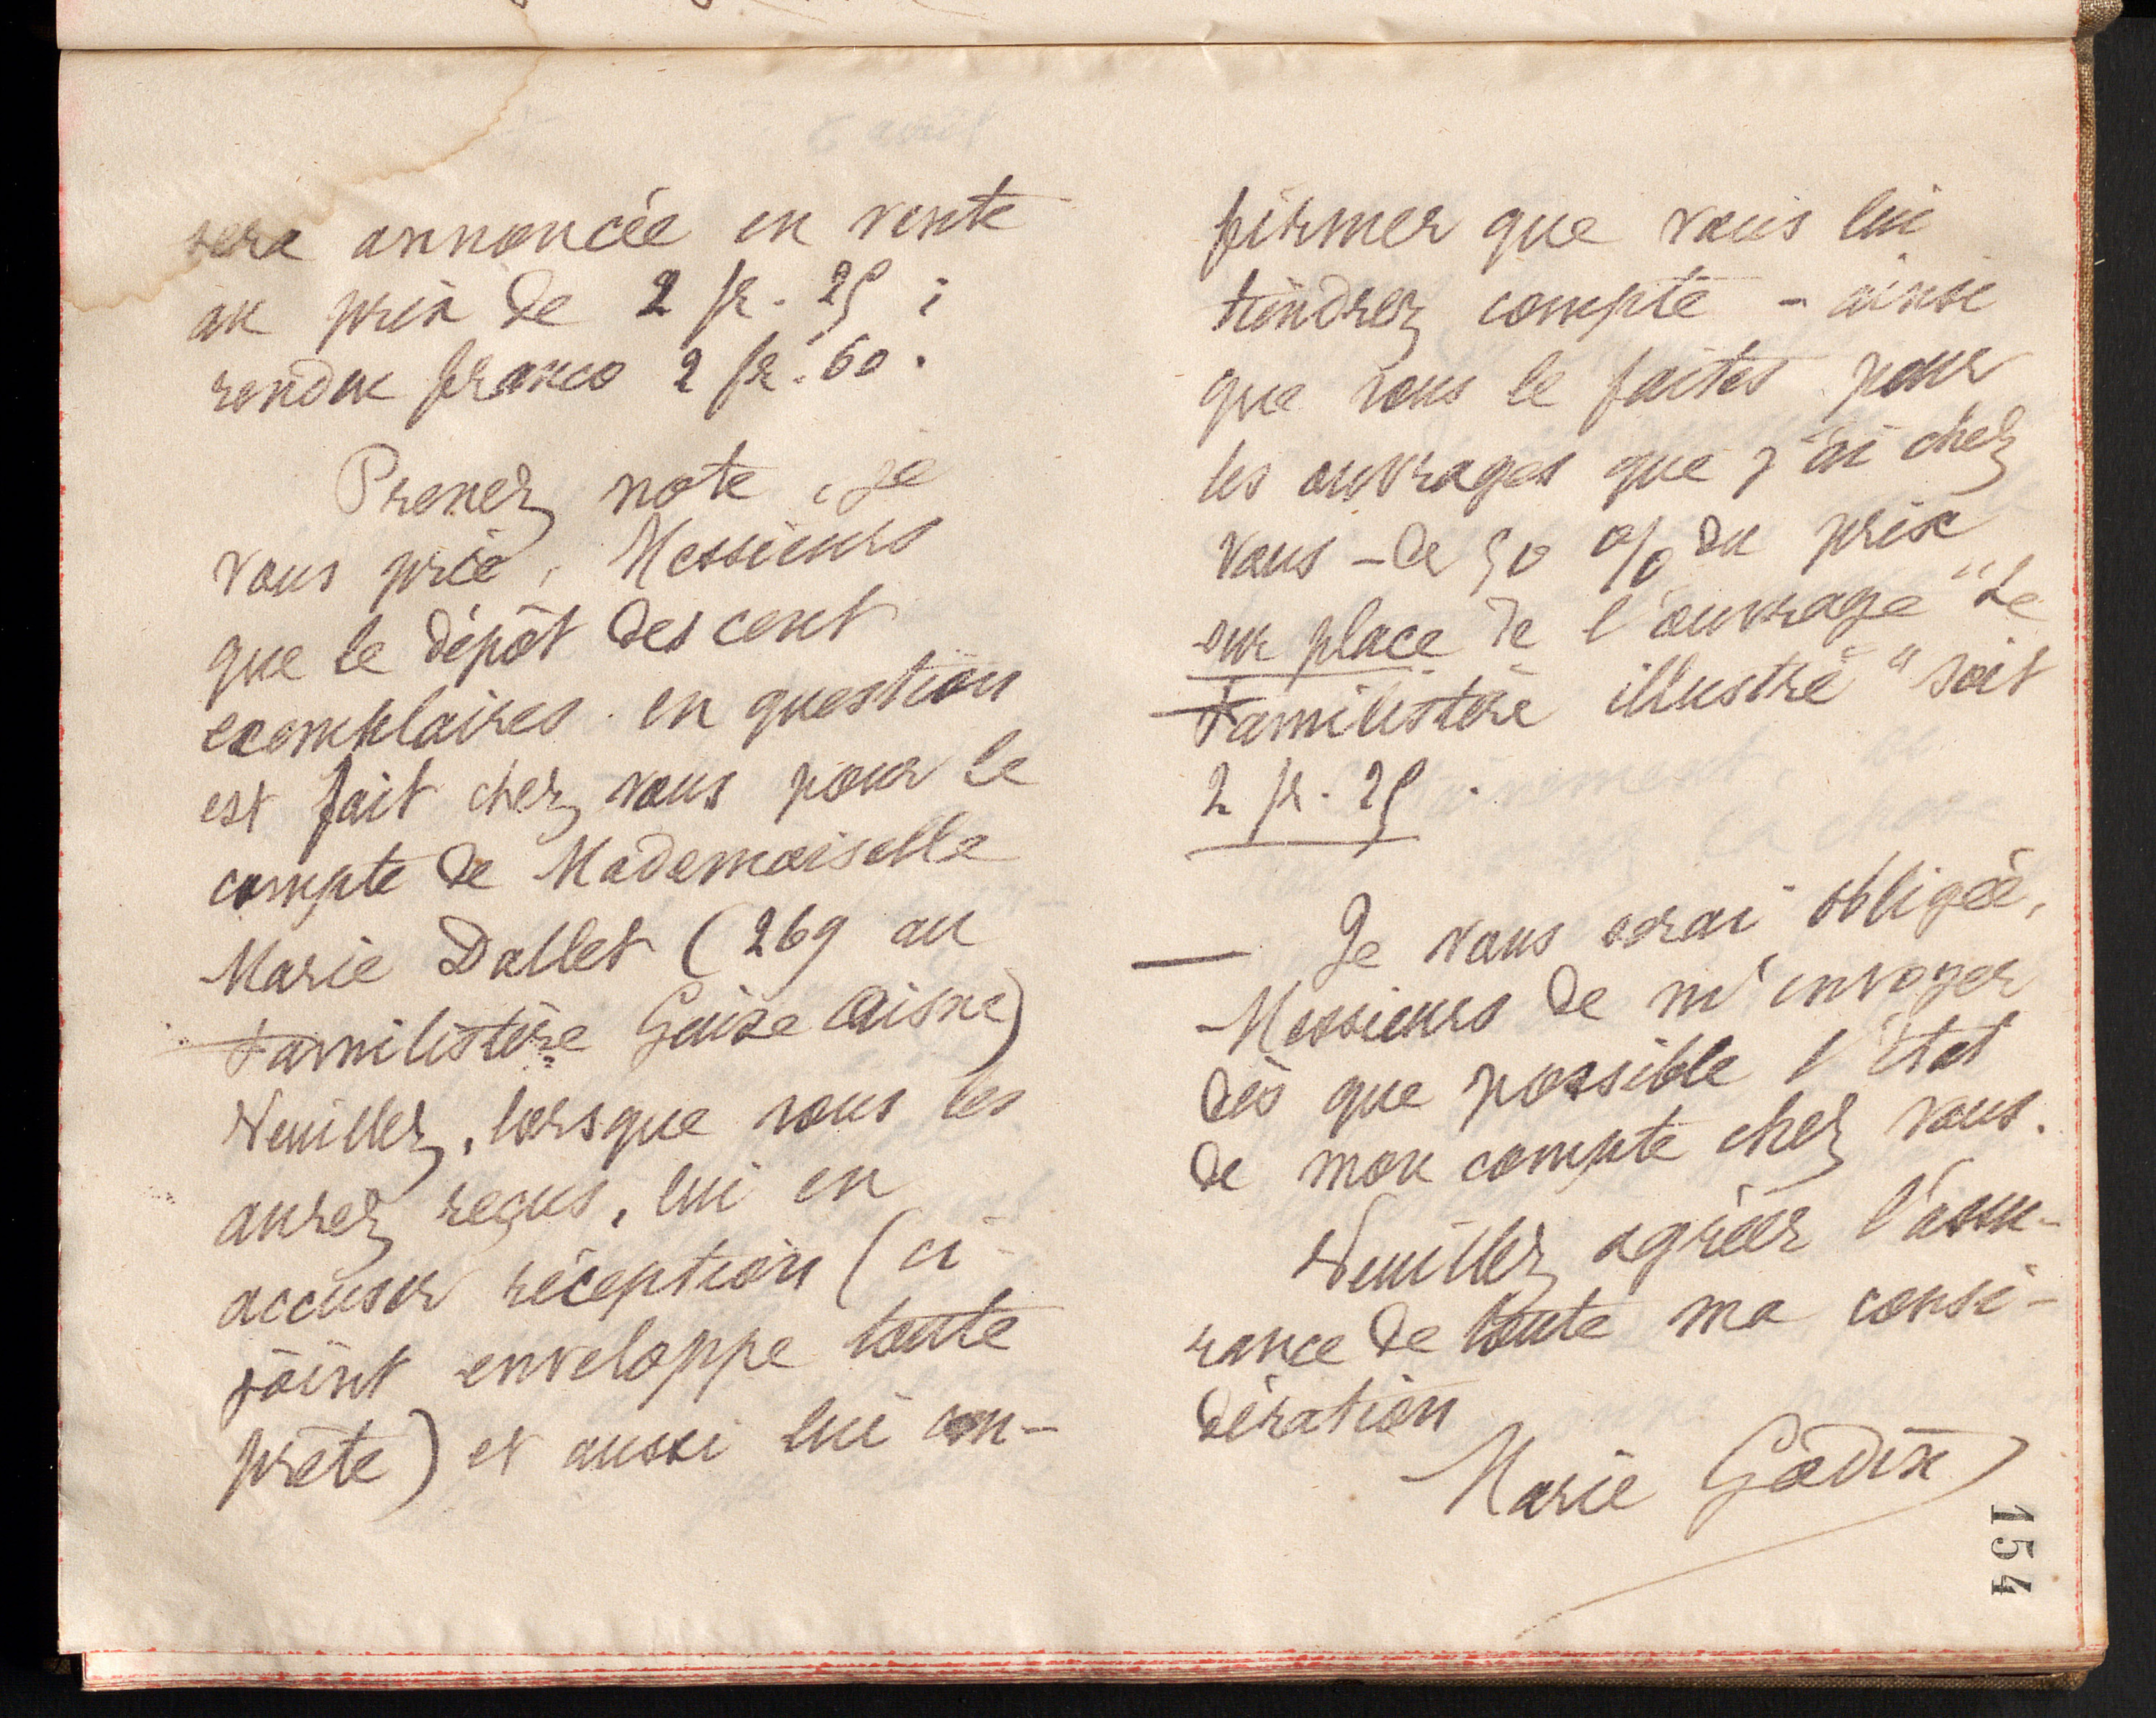 sera annoncée en vente
au prix de 2 fr. 25 ;
rendue franco 2 fr. 60.
Prenez note, je
vous prie, Messieurs
que le dépôt des cent
exemplaires en question
est fait chez vous pour le
compte de Mademoiselle
Marie Dallet (269 au
Familistère Guise Aisne)
Veuillez, lorsque vous les
aurez reçus, lui en
accuser réception (ci-
joint enveloppe toute
prête) et aussi lui con-
firmer que vous lui
tiendrez compte - ainsi
que vous le faites pour
les ouvrages que j'ai chez
vous - de 50 % du prix
sur place de l'ouvrage "Le
Familistère illustré" soit
2 fr. 25.
— Je vous serai obligée,
Messieurs de m'envoyer
dès que possible l'État
de mon compte chez vous.
Veuillez agréer l'assu-
rance de toute ma consi-
dération
Marie Godin
154